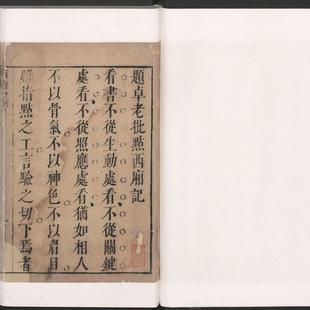 題卓老批點西廂記
看書不從生動處看不從關鍵
處看不從照應處看猶如相人
不以骨氣不以神色不以眉目
雖指點之工言驗之切下焉者